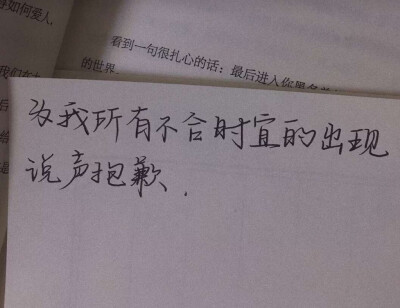 得如何爱人
看到一句很扎心的话：最后进入你
的世界
我们在
后
为我所有不合时宜的出现
说声抱歉.